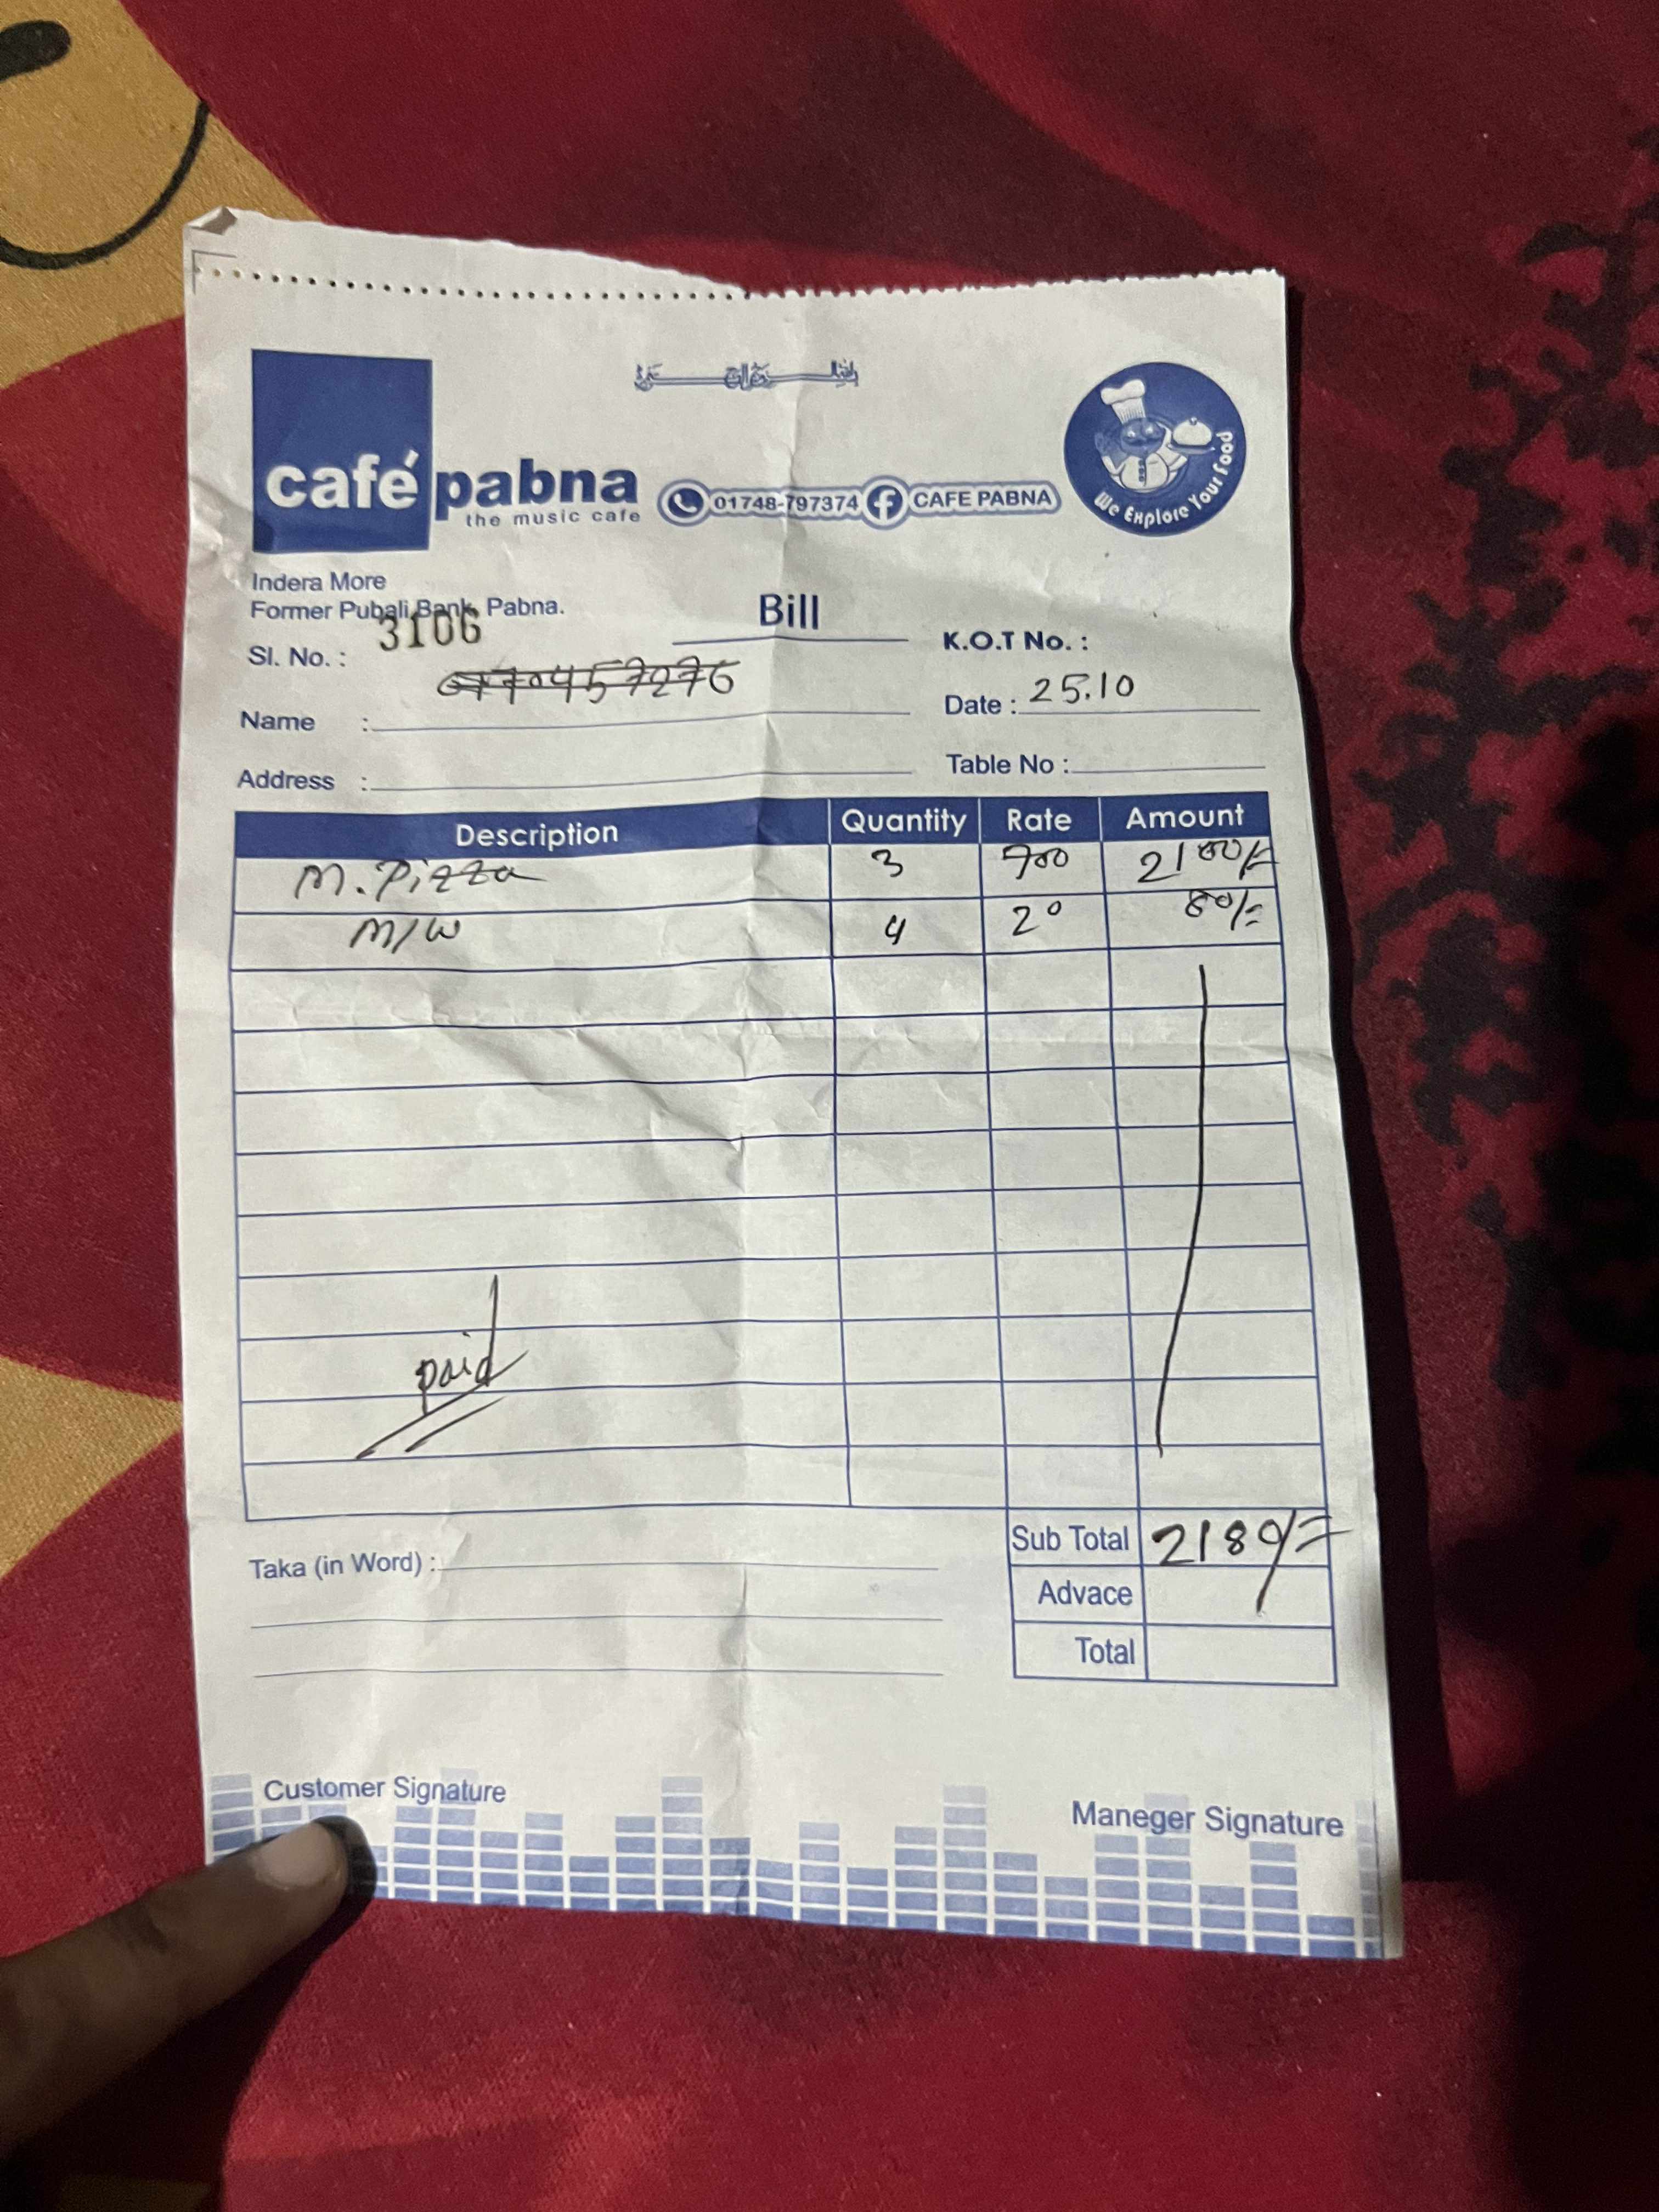 café pabna
the music cafe
01748-797374 CAFE PABNA
We Explore Your Food
Indera More
Former Pubali Bank, Pabna.
Bill
Sl. No. : 3106
K.O.T No. :
Name :
Date : 25.10
Address :
Table No :
Description Quantity Rate Amount
M. Pizza 3 700 2100/=
M/W 4 20 80/=
paid
Sub Total 2180/=
Taka (in Word) :
Advace
Total
Customer Signature
Maneger Signature